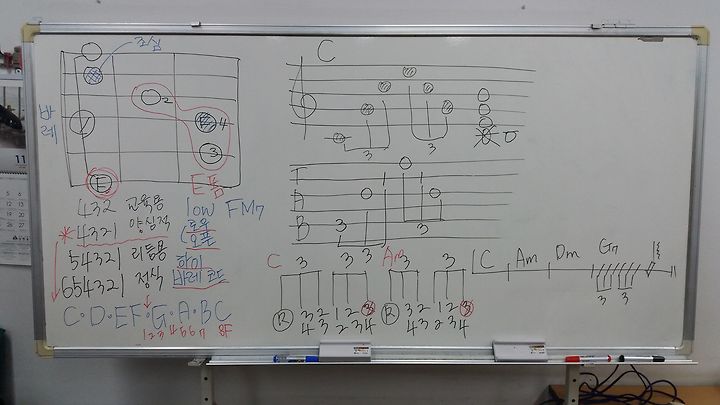 조심
2
바레
4
3
E
E폼
432 교육용 low FM7
*4321 양심적 로우
(오픈
54321 리듬용 하이
654321 정식 바레코드
C·D·EF·G·A·BC
1 2 3 4 5 6 7 8F
C
3 3
T
A
B
3 3 3
C 3 3 3 Am 3 3
R 3 2 1 2 3 R 3 2 1 2 3
4 3 2 3 4 4 3 2 3 4
C Am Dm G7
3 3
11